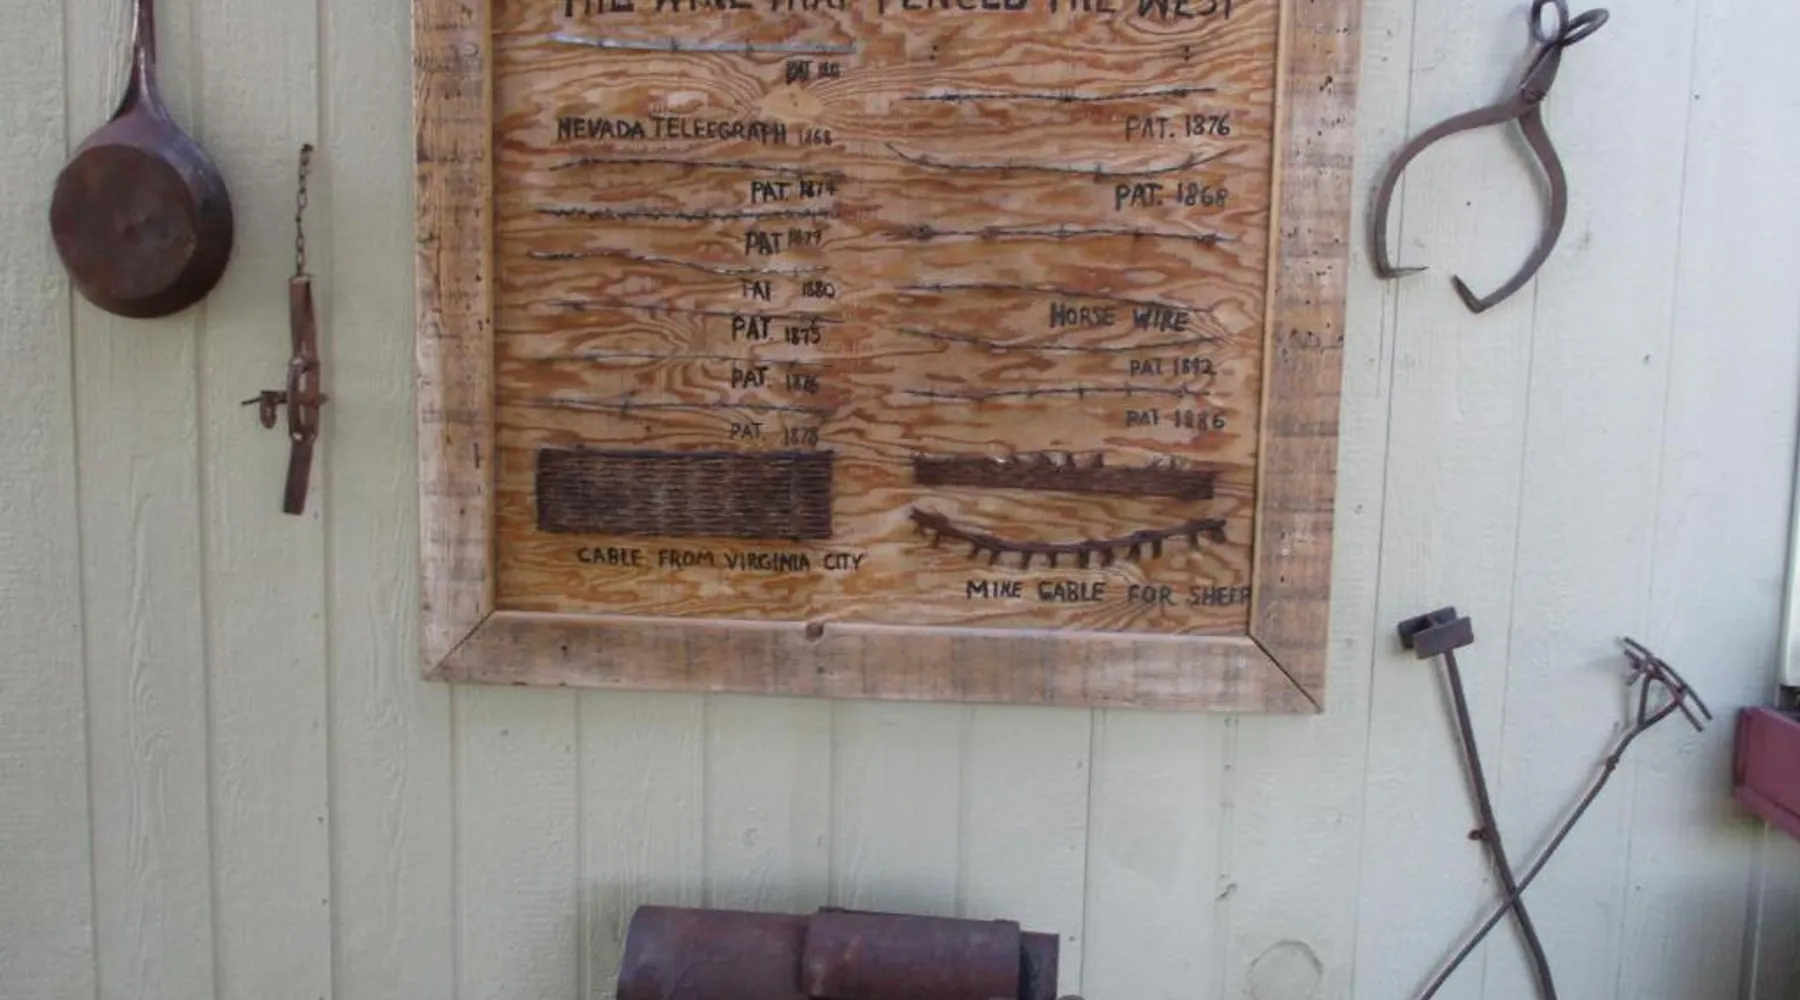 THE WIRE THAT FENCED THE WEST
PAT
NEVADA TELEEGRAPH 1868
PAT. 1874
PAT 1879
PAT 1880
PAT. 1875
PAT. 1876
PAT. 1878
CABLE FROM VIRGINIA CITY
PAT. 1876
PAT. 1868
HORSE WIRE
PAT 1892
PAT 1886
MINE CABLE FOR SHEEP